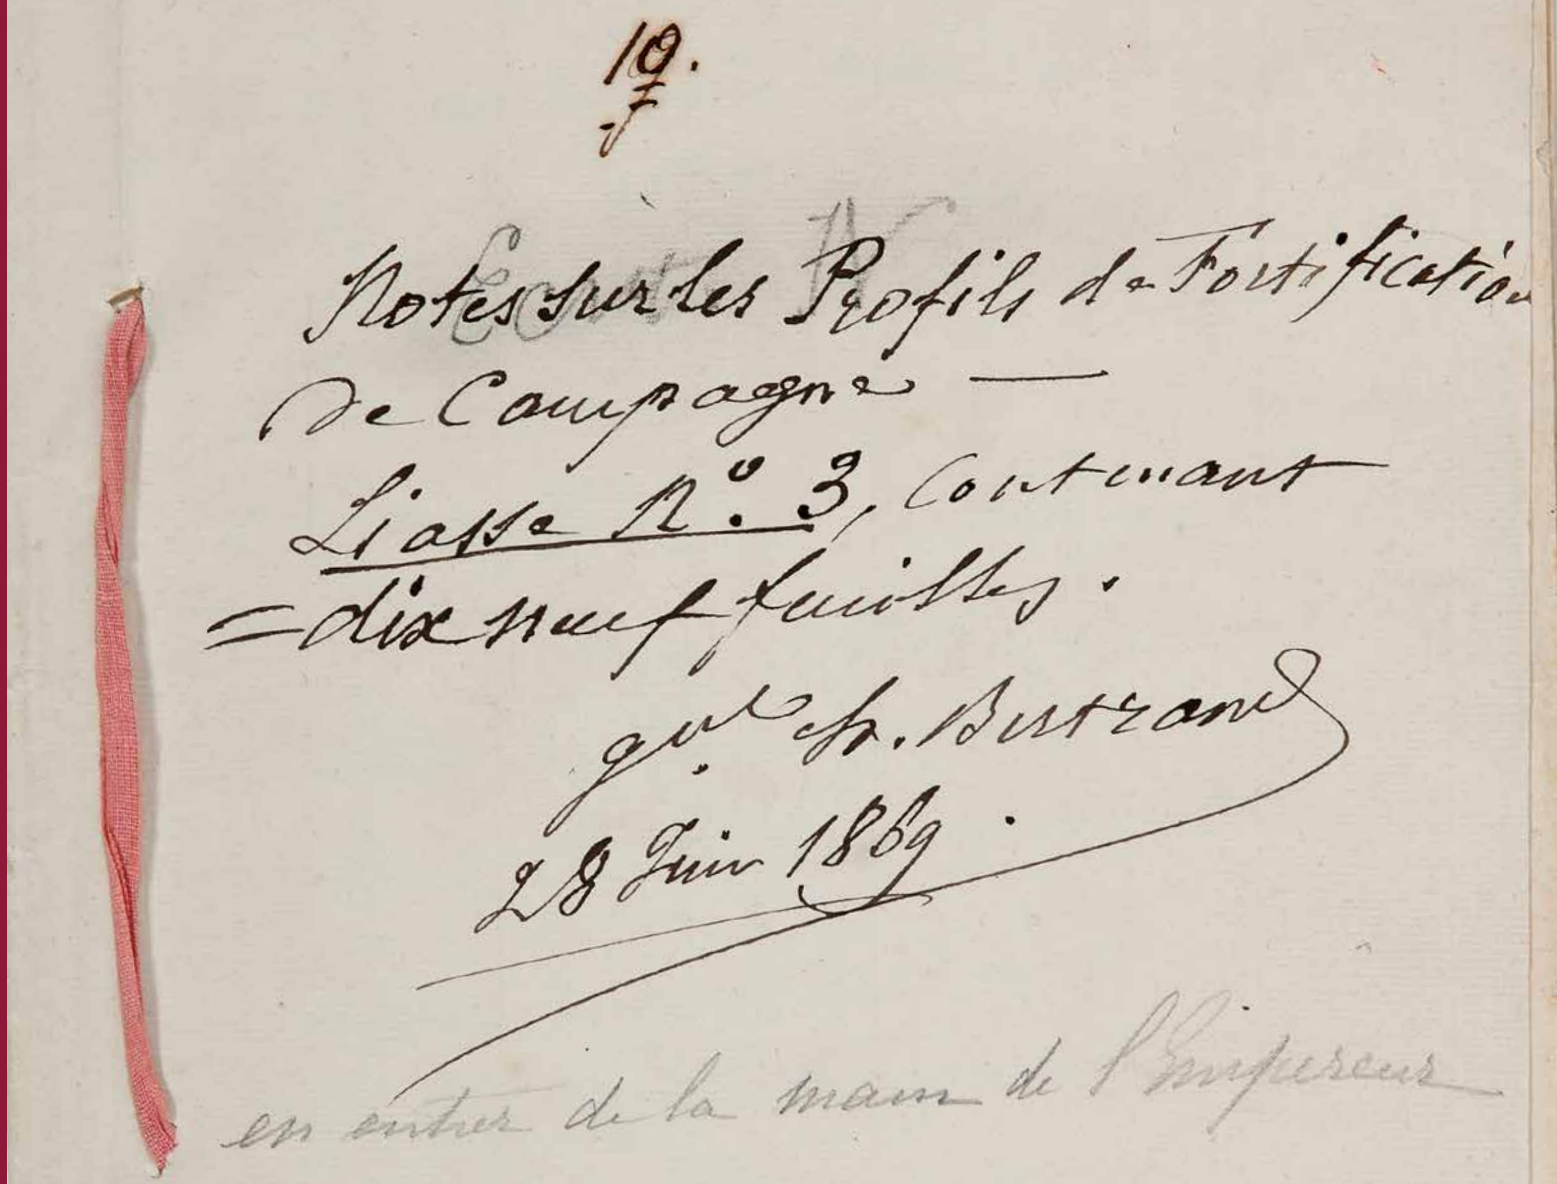 19.
f
Notes sur les Profils de Fortification
de Campagne —
Liasse N.º 3, Contenant
= dix neuf feuilles.
gral. h. Bertrand
28 Juin 1869.
en entier de la main de l'Empereur